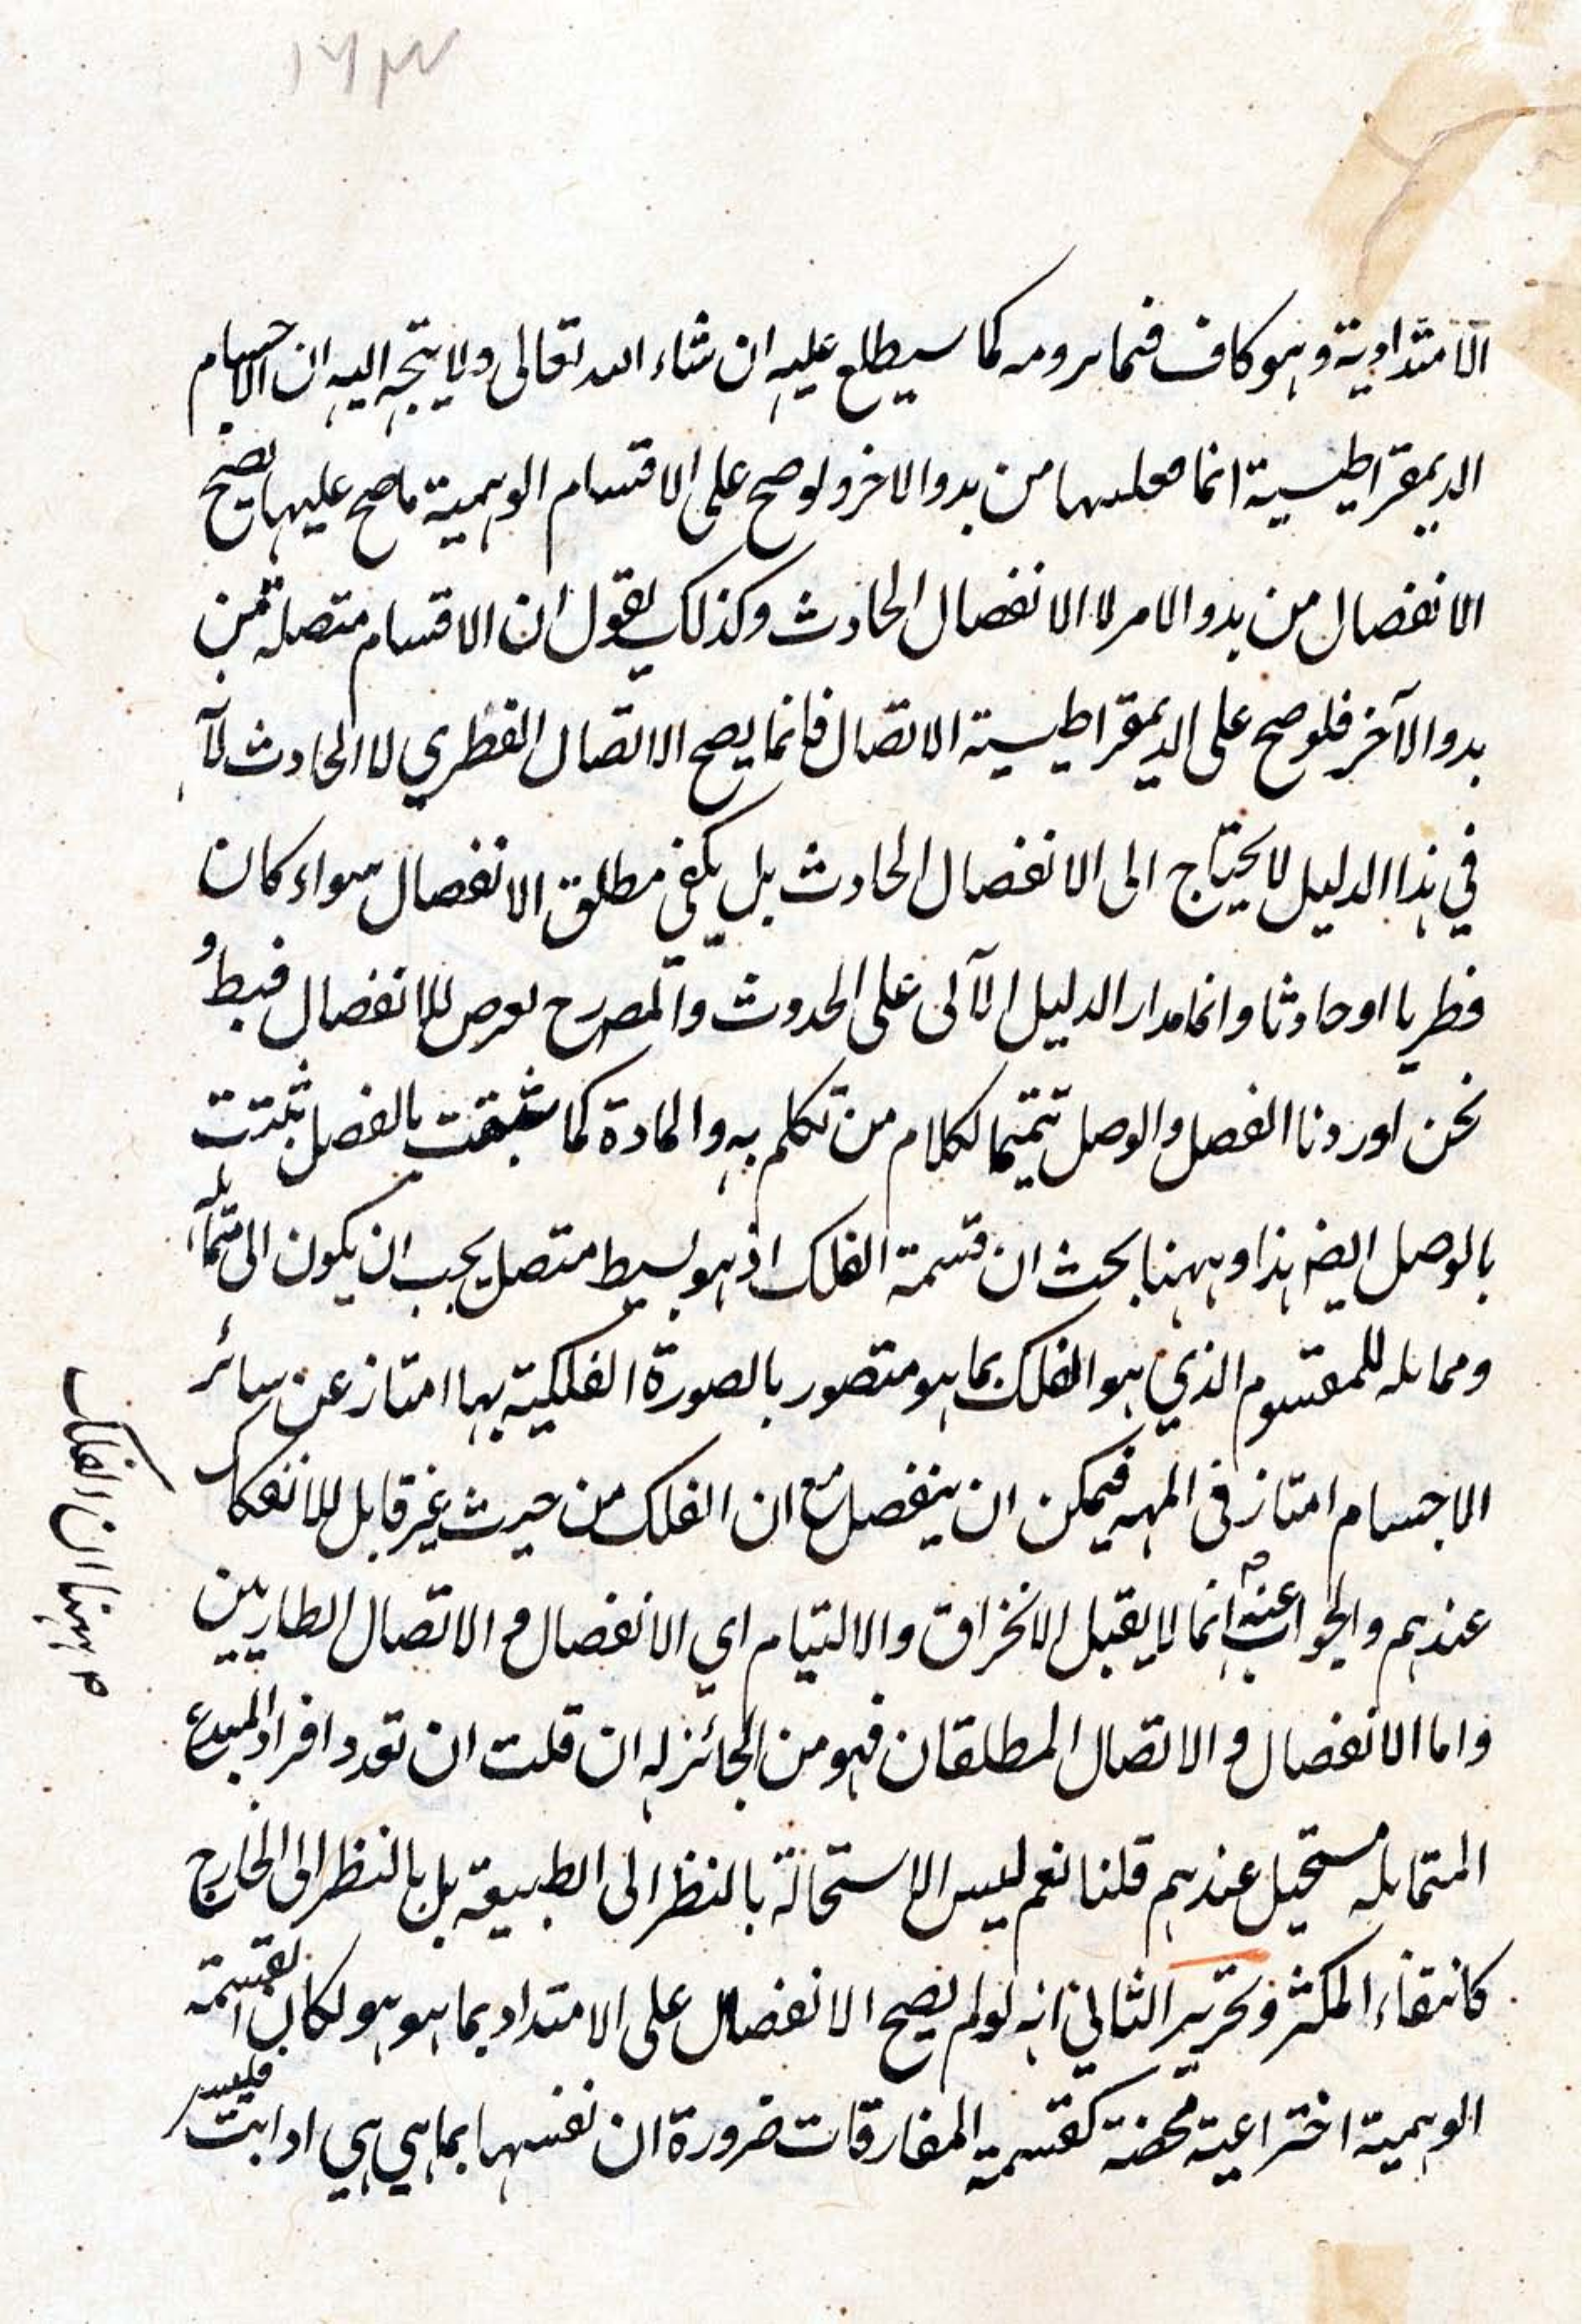 ١٦٣
الامتدادية وهو كاف فيما يرومه كما سيطلع عليه ان شاء الله تعالى ولا يتجه اليه ان الاجسام
الديمقراطيسية انما من بدو الاخر ولو صح على الاقسام الوهمية ما صح عليها يصح
الانفصال من بدو الامر لا الانفصال الحادث وكذلك يقول ان الاقسام متصلة من
بدو الآخر فلو صح على الديمقراطيسية الاتصال فانما يصح الاتصال الفطري لا الحادث لانه
في هذا الدليل لا يحتاج الى الانفصال الحادث بل يكفي مطلق الانفصال سواء كان
فطريا او حادثا وانما مدار الدليل الآلى على الحدوث والمصرح للانفصال فبط و
نحن اوردنا الفصل والوصل تتميما لكلام من تكلم به والمادة كما بالفصل تثبت
بالوصل ايضه هذا وههنا بحث ان قسمة الفلك اذ هو بسيط متصل يجب ان يكون الى متماثله
ومماثله للمقسوم الذي هو الفلك بما هو متصور بالصورة الفلكية بها امتاز عن سائر
الاجسام امتاز في المهية فيمكن ان ينفصل مع ان الفلك من حيث غير قابل للانفكاك
عندهم والجواب عنه انما لا يقبل الانخراق والالتيام اي الانفصال و الاتصال الطاريين
واما الانفصال و الاتصال المطلقان فهو من الجائز له ان قلت ان تعدد افراد المبدع
المتماثله مستحيل عندهم قلنا نعم ليس الاستحالة بالنظر الى الطبيعة بل بالنظر الى الخارج
كانتفاء المكثر وتحرير الثاني انه لو لم يصح الانفصال على الامتداد بما هو هو لكان القسمة
الوهمية اختراعية محضة كقسمة المفارقات ضرورة ان نفسها بما هي هي اذ ابت فليس
ههنا ان الفلك